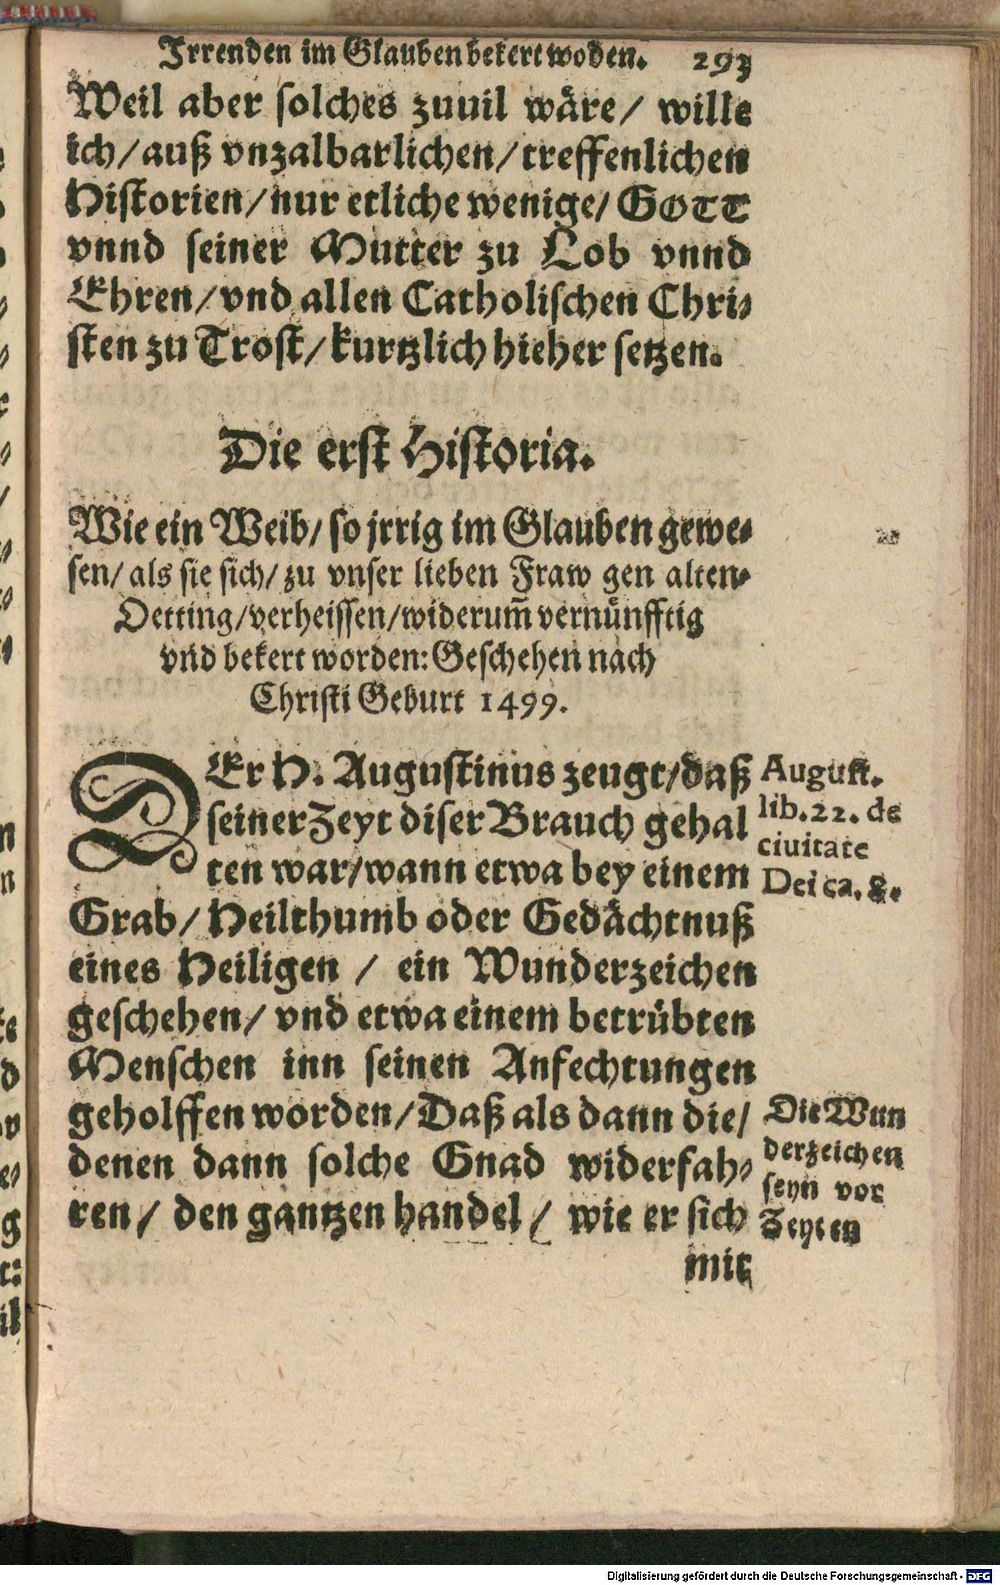 Irrenden im Glauben bekert woden. 293
Weil aber solches zuuil wäre/ wille
ich/ auß vnzalbarlichen/ treffenlichen
Historien/ nur etliche wenige/ GOTT
vnnd seiner Mutter zu Lob vnnd
Ehren/ vnd allen Catholischen Chri-
sten zu Trost/ kurtzlich hieher setzen.
Die erst Historia.
Wie ein Weib/ so jrrig im Glauben gewe-
sen/ als sie sich/ zu vnser lieben Fraw gen alten-
Oetting/ verheissen/ widerum̃ vernünfftig
vñd bekert worden: Geschehen nach
Christi Geburt 1499.
DEr H. Augustinus zeugt/ daß
seiner Zeyt diser Brauch gehal
ten war/ wann etwa bey einem
Grab/ Heilthumb oder Gedächtnuß
eines Heiligen / ein Wunderzeichen
geschehen/ vnd etwa einem betrübten
Menschen inn seinen Anfechtungen
geholffen worden/ Daß als dann die/
denen dann solche Gnad widerfah-
ren/ den gantzen handel/ wie er sich
mit
August.
lib. 22. de
ciuitate
Dei ca. 8.
Die Wun
derzeichen
seyn vor
Zeyten
Digitalisierung gefördert durch die Deutsche Forschungsgemeinschaft - DFG